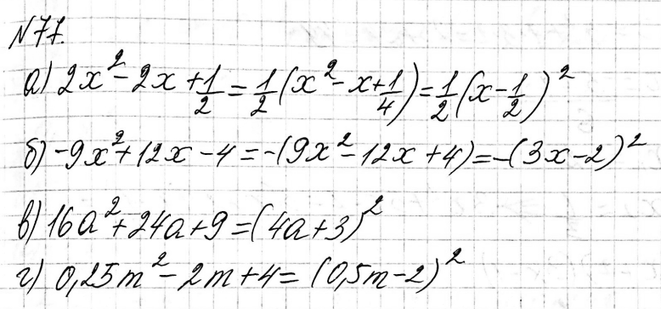 N77.
а) 2x² - 2x + 1/2 = 1/2 (x² - x + 1/4) = 1/2 (x - 1/2)²
б) -9x² + 12x - 4 = -(9x² - 12x + 4) = -(3x - 2)²
в) 16a² + 24a + 9 = (4a + 3)²
г) 0,25m² - 2m + 4 = (0,5m - 2)²